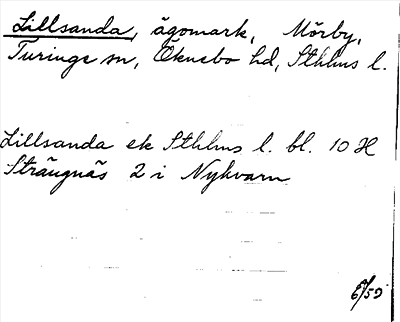 Lillsanda, ägomark, Mörby,
Turinge sn, Öknebo hd, Sthlms l.
Lillsanda ek Sthlms l. bl. 10 H
Strängnäs 2 i Nykvarn